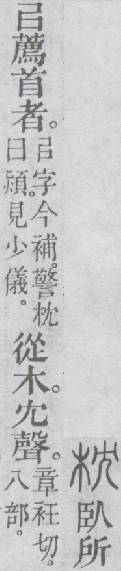 枕 臥所
㠯薦首者。㠯字今補。警枕曰熲。見少儀。從木冘聲。章衽切。八部。